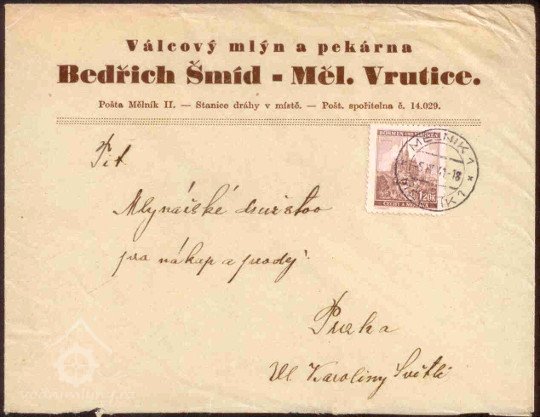 Válcový mlýn a pekárna
Bedřich Šmíd - Měl. Vrutice.
Pošta Mělník II. — Stanice dráhy v místě. — Pošt. spořitelna č. 14.029.
BÖHMEN UND MÄHREN
1.20 K
ČECHY A MORAVA
MĚLNÍK 1
41-18
Mlynářské družstvo
pro nákup a prodej
Praha
Ul Karoliny Světlé